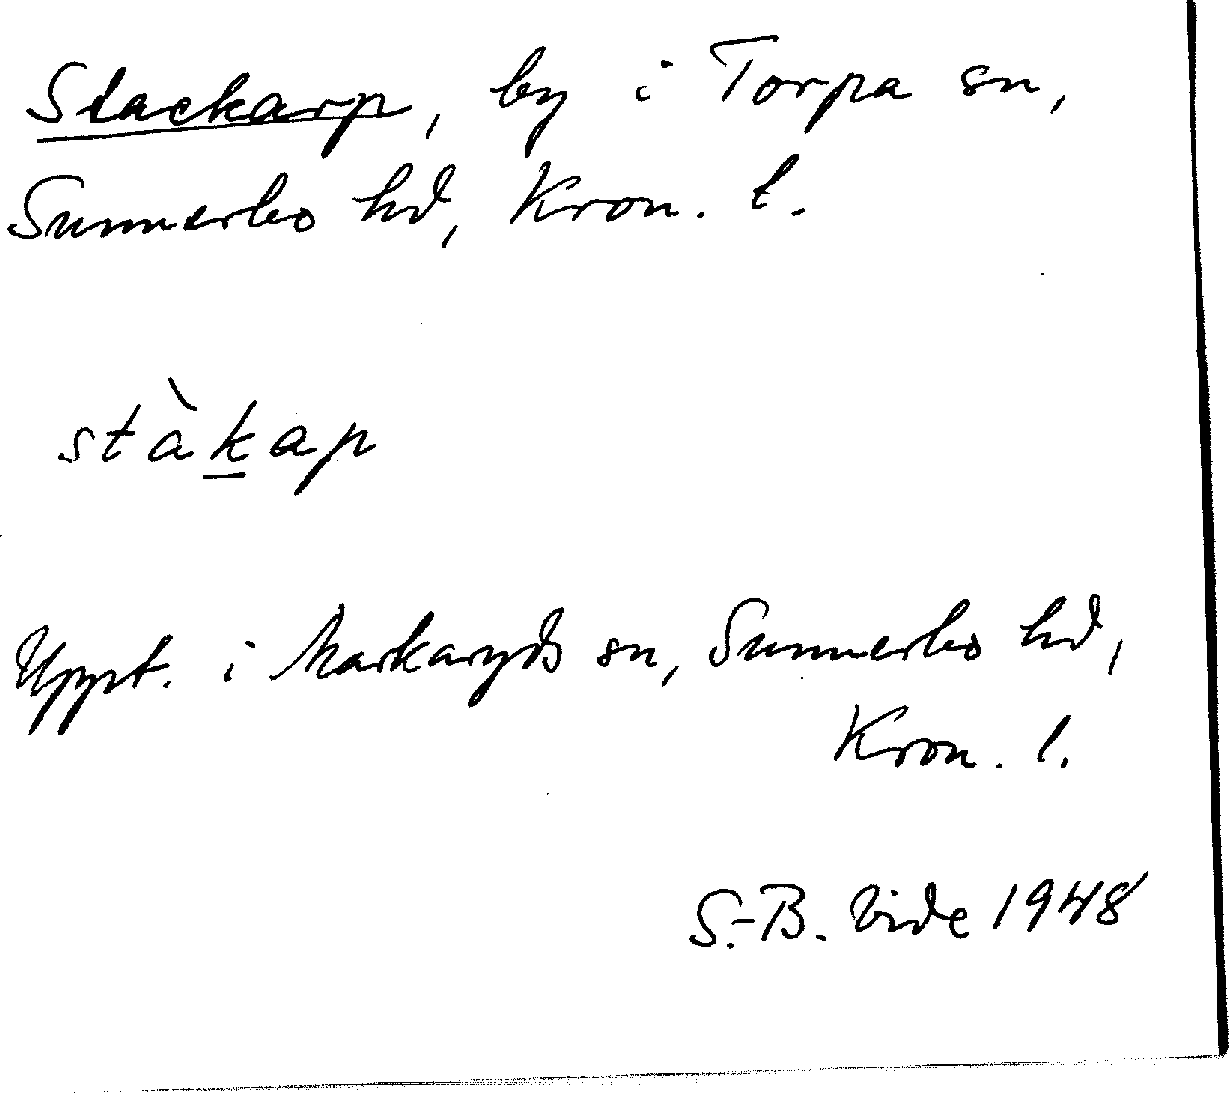 Stackarp, by i Torpa sn,
Sunnerbo hd, Kron. l.
stàk̲ap
Uppt. i Markaryds sn, Sunnerbo hd,
Kron. l.
S.-B. Vide 1948